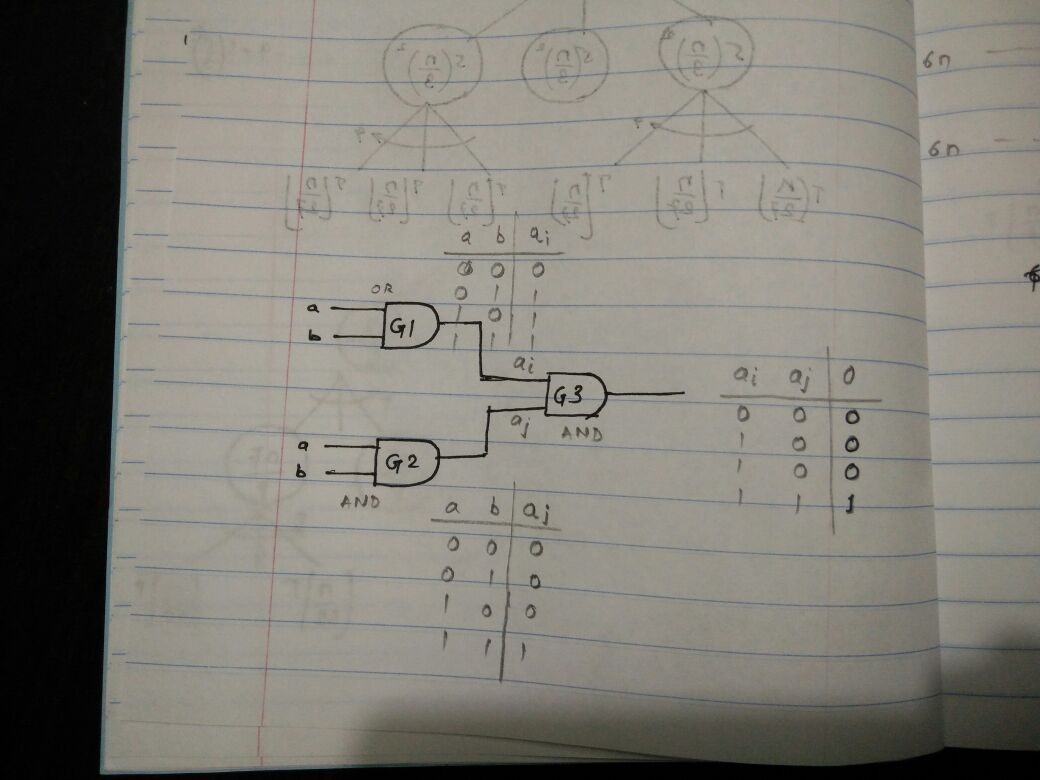 6n
6n
a b ai
0 0 0
0 1 1
1 0 1
1 1 1
OR
a
b
G1
ai
G3
aj
AND
a
b
G2
AND
ai aj 0
0 0 0
1 0 0
1 0 0
1 1 1
a b aj
0 0 0
0 1 0
1 0 0
1 1 1